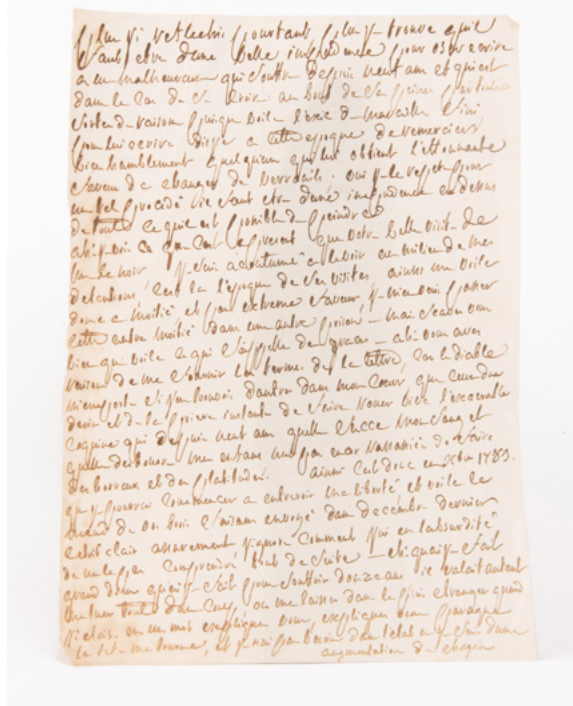 plus j'i reflechi pourtant plus je trouve quil
faut etre dune belle impudence pour oser ecrire
a un malheureux qui souffre depuis neuf ans et qui est
dans le cas de se croire au bout de ses peines par toutes
sortes de raisons puisque voila
pour lui ecrire disje a cette epoque de remercier
bien humblement quelquun qui lui obtient l'ettonnante
faveur de changer de verrouils. oui je le repete pour
un tel procédé il faut etre dune impudence au dessus
de tout ce qui est possible de peindre
ah je vois ce que cest a present que votre belle visite de
mr le noir je suis acoutumé a le voir au milieu de mes
detentions, cest la l'epoque de ses visites ainsi me voila
donc a moitié et par extreme faveur, je men vais passer
cette autre moitié dans une autre prison — mais scaves vous
bien que voila ce qui s'appelle des graces — ah vous aves
raison de me fournir les termes de la lettre, car le diable
memporte si jen trouvois dautre dans mon cœur que ceux du
desir et de la priere instante de faire rouer vive l'execrable
coquine qui depuis neuf ans quelle succe mon sang et
quelle devore mes enfans nest pas encor rassasiée de faire
des horreurs et des platitudes. ainsi cest donc en xbre 1783.
que je pourrai commencer a entrevoir ma liberté et voila le
envoyé dans decembre dernier
cetoit clair assurement, j'ignore comment jai eu l'absurdité
de ne le pas comprendre tout de suite — eh quai-je fait
grand dieu quai-je fait pour souffrir douze ans il valait autant
me tuer tout dun coup, ou me laisser dans le païs etranger quand
j'i etois. en un mot expliques vous, expliques vous
la tete me tourne, et je nai pas besoin dans letat ou je suis dune
augmentation de chagrin